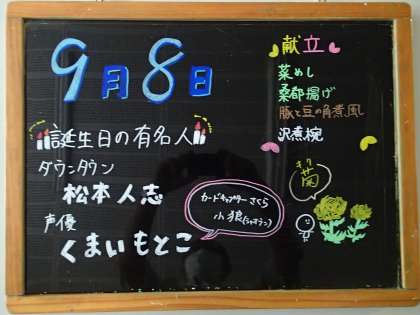 9月8日
誕生日の有名人
ダウンタウン
松本人志
声優
くまいもとこ
カードキャプターさくら
小狼(シャオラン)
献立
菜めし
桑都揚げ
豚と豆の角煮風
沢煮椀
キク
菊